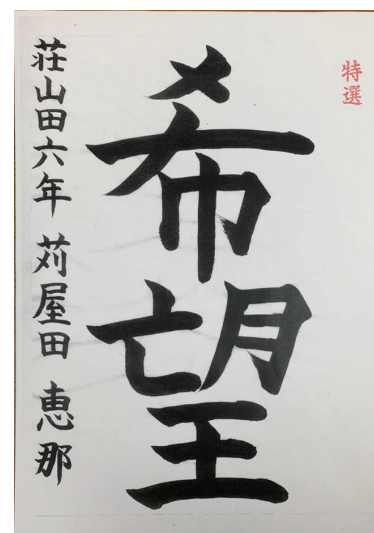 特選
希望
荘山田六年 苅屋田 恵那